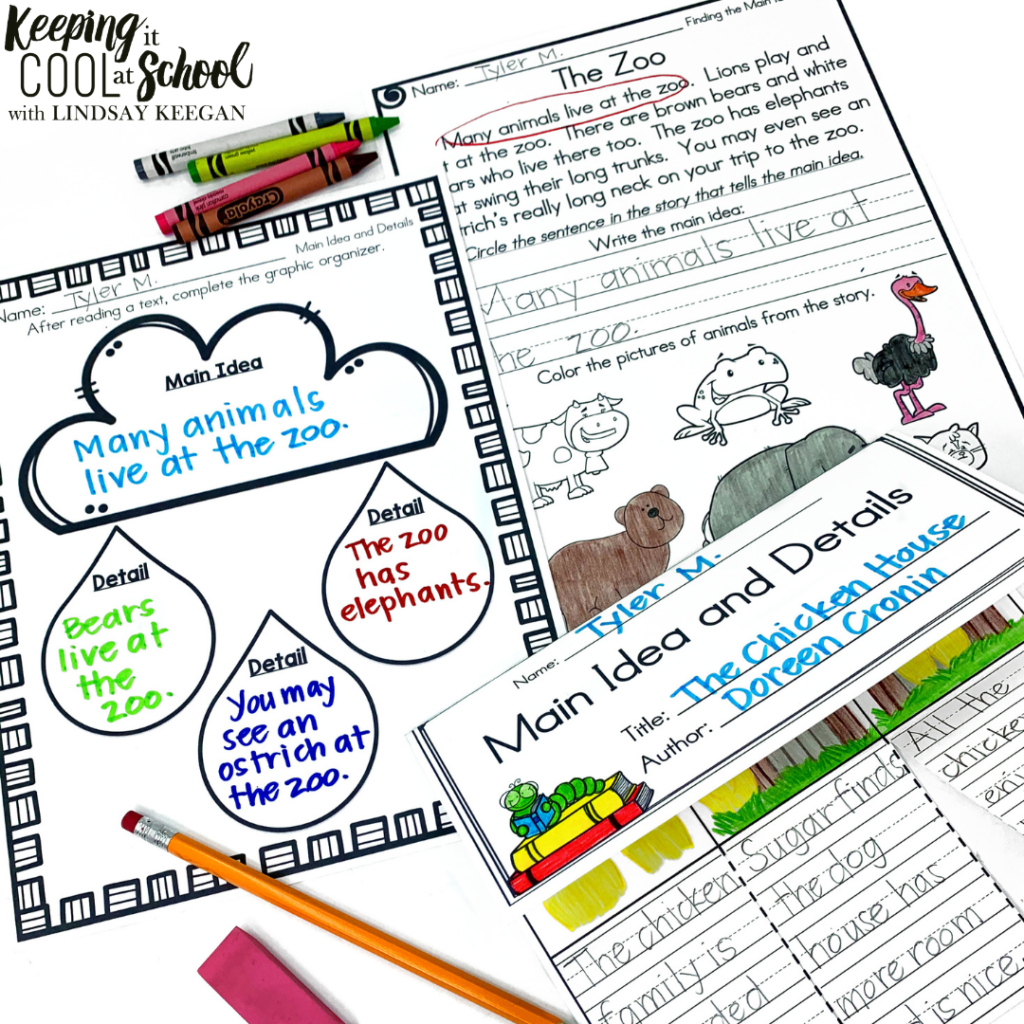 Keeping it
COOL at School
with LINDSAY KEEGAN
Crayola
Name: Tyler M.
Main Idea and Details
After reading a text, complete the graphic organizer.
Main Idea
Many animals
live at the zoo.
Detail
Bears
live at
the
zoo.
Detail
You may
see an
ostrich at
the zoo.
Detail
The zoo
has
elephants.
Finding the Main
Name: Tyler M.
The Zoo
Many animals live at the zoo. Lions play and
at the zoo. There are brown bears and white
ars who live there too. The zoo has elephants
at swing their long trunks. You may even see an
rich's really long neck on your trip to the zoo.
Circle the sentence in the story that tells the main idea.
Write the main idea:
Many animals live at
he zoo.
Color the pictures of animals from the story.
Name: Tyler M.
Main Idea and Details
Title: The Chicken House
Author: Doreen Cronin
The chicken
family is
ded
Sugar finds
the dog
house has
more room
d is nice.
All the
chicke
enj